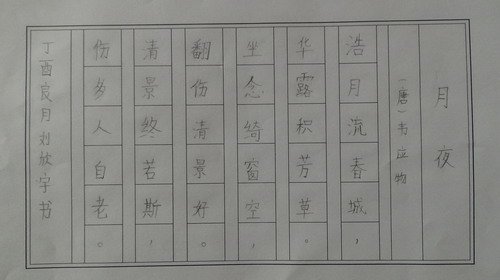 月夜
（唐）韦应物
浩月流春城，
华露积芳草。
坐念绮窗空，
翻伤清景好。
清景终若斯，
伤多人自老。
丁酉良月刘欣宇书